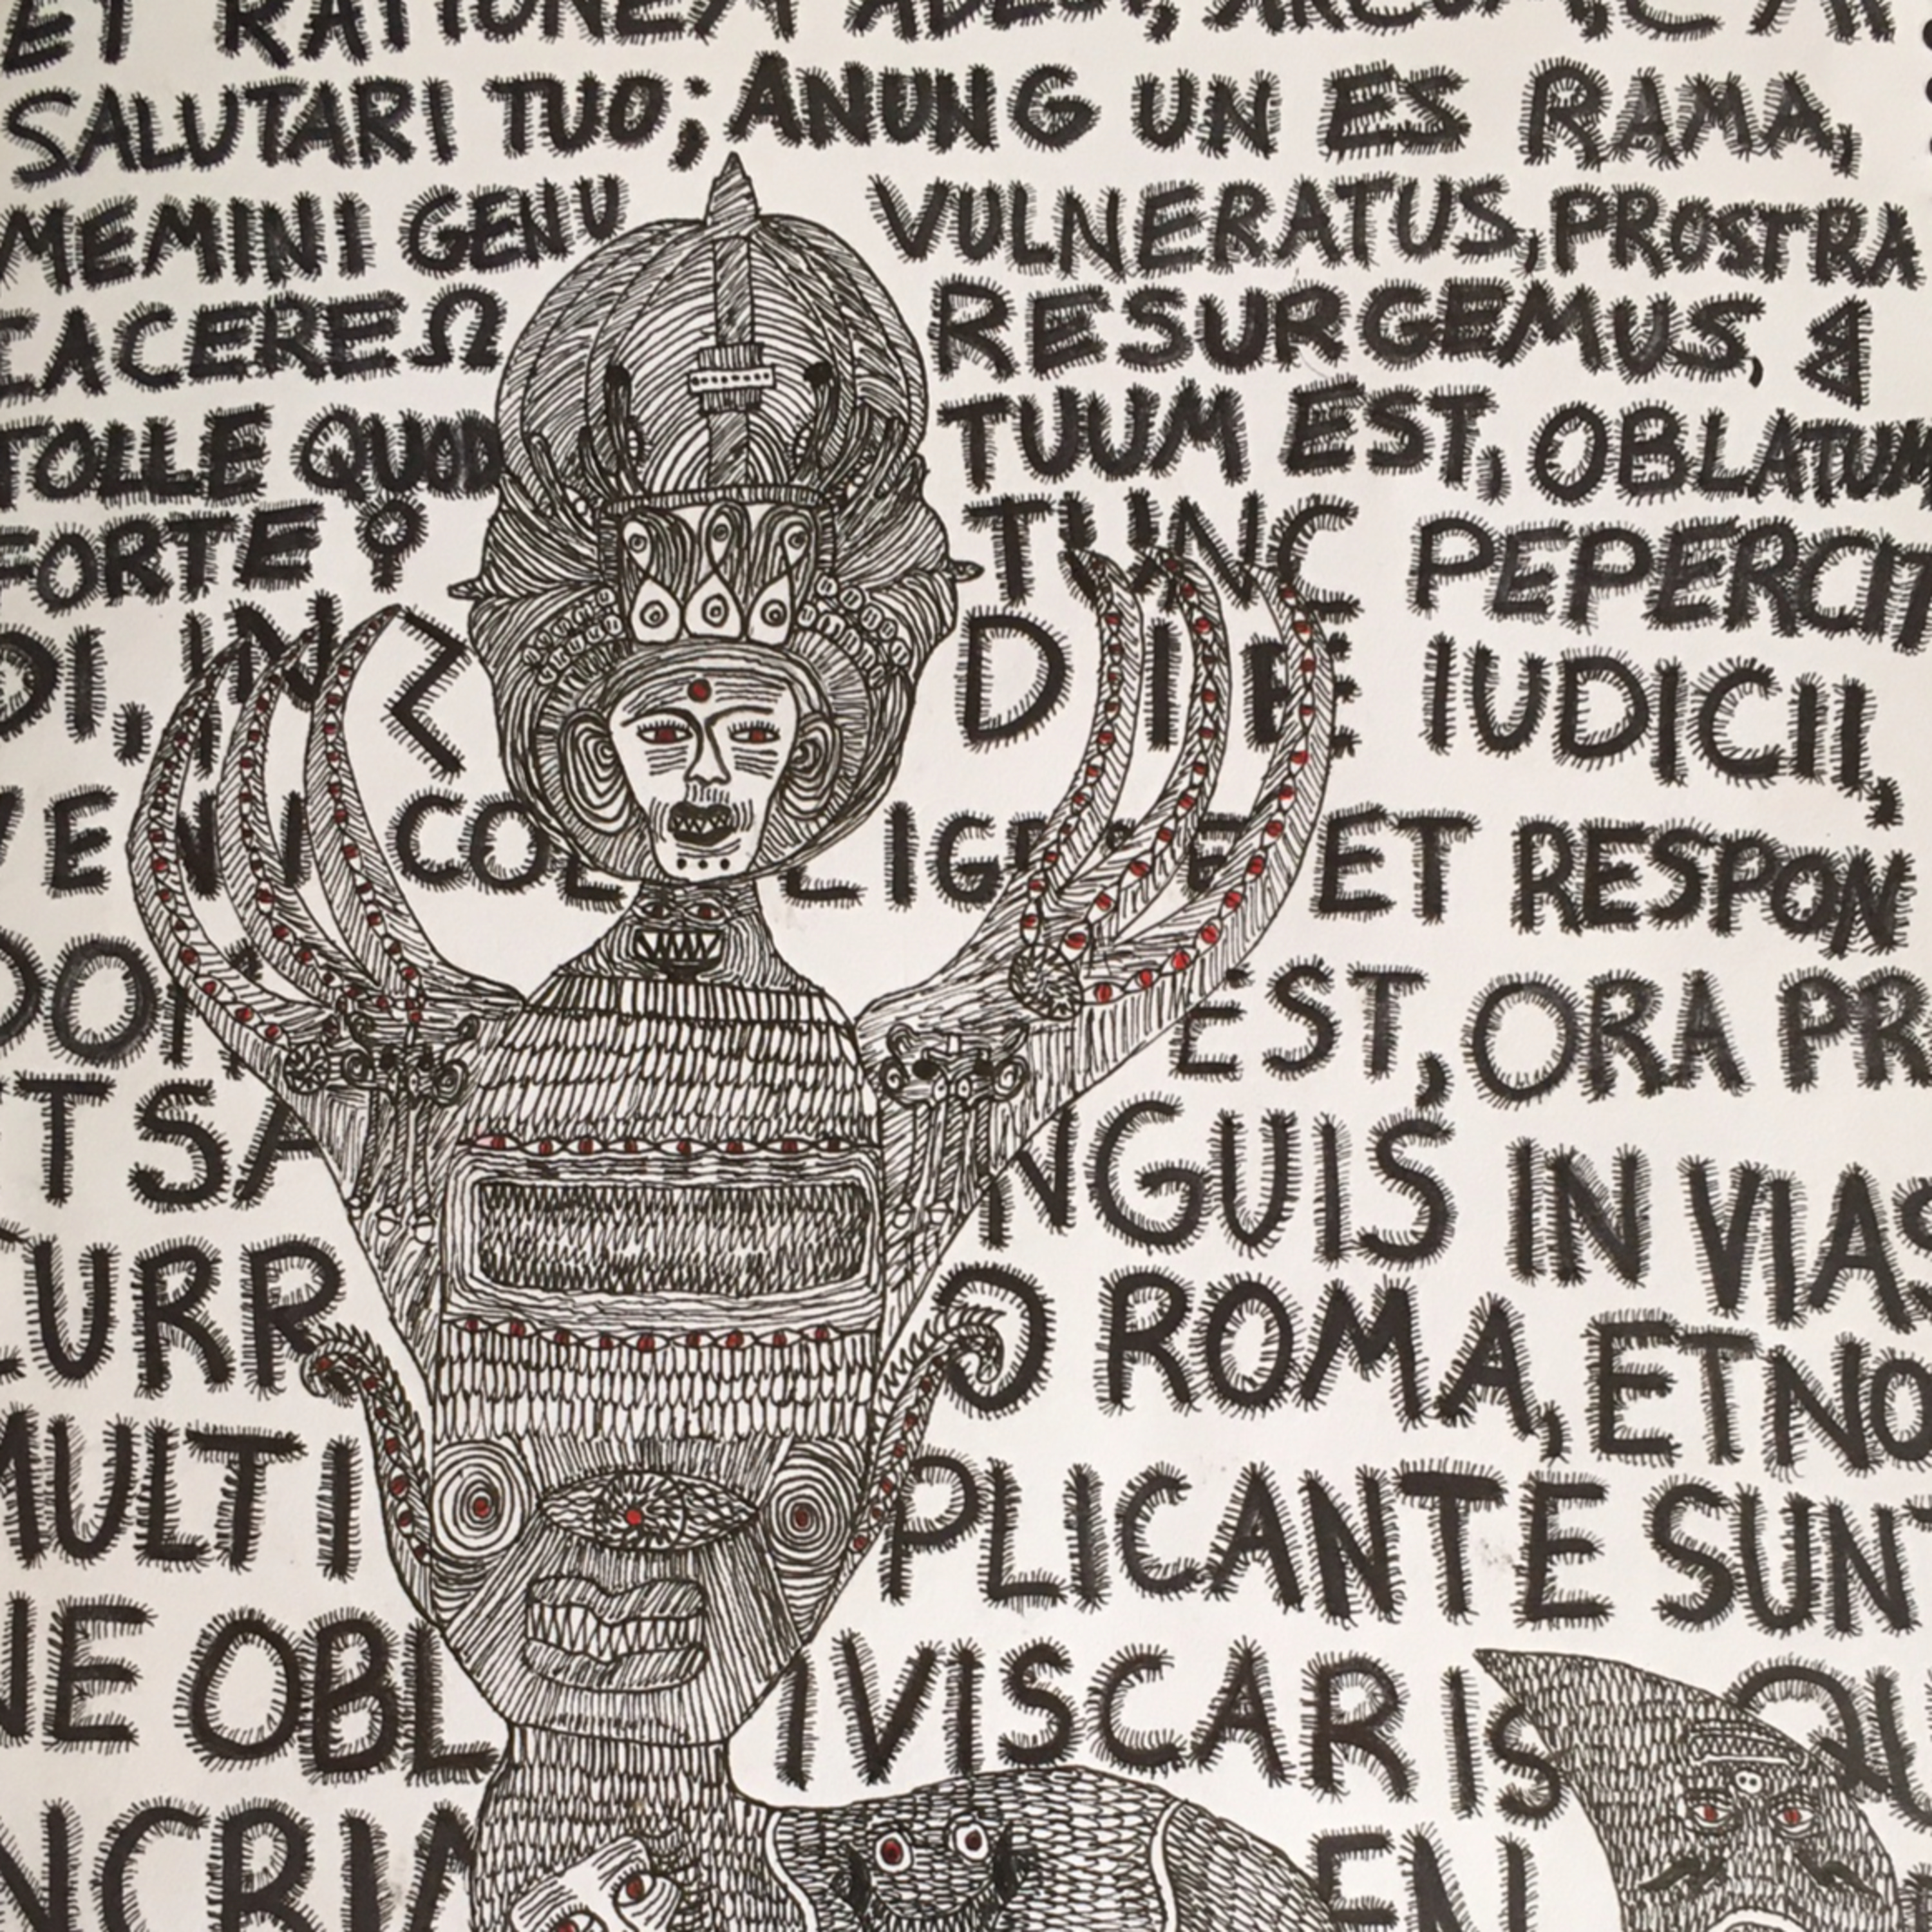 ET RATIONEM ADEST,
SALUTARI TUO; ANUNG UN ES RAMA,
MEMINI GENU VULNERATUS, PROSTRA
IACERE Ω RESURGEMUS,
TOLLE QUOD TUUM EST, OBLATUM
FORTE ♀ TUNC PEPERCIT
DI, IN DIE IUDICII,
VENI COLLIGERE ET RESPON
EST, ORA PR
T SANGUIS IN VIAS
CURRO ROMA, ET NO
MULTIPLICANTE SUNT
NE OBLIVISCARIS QU
NCRIM EN